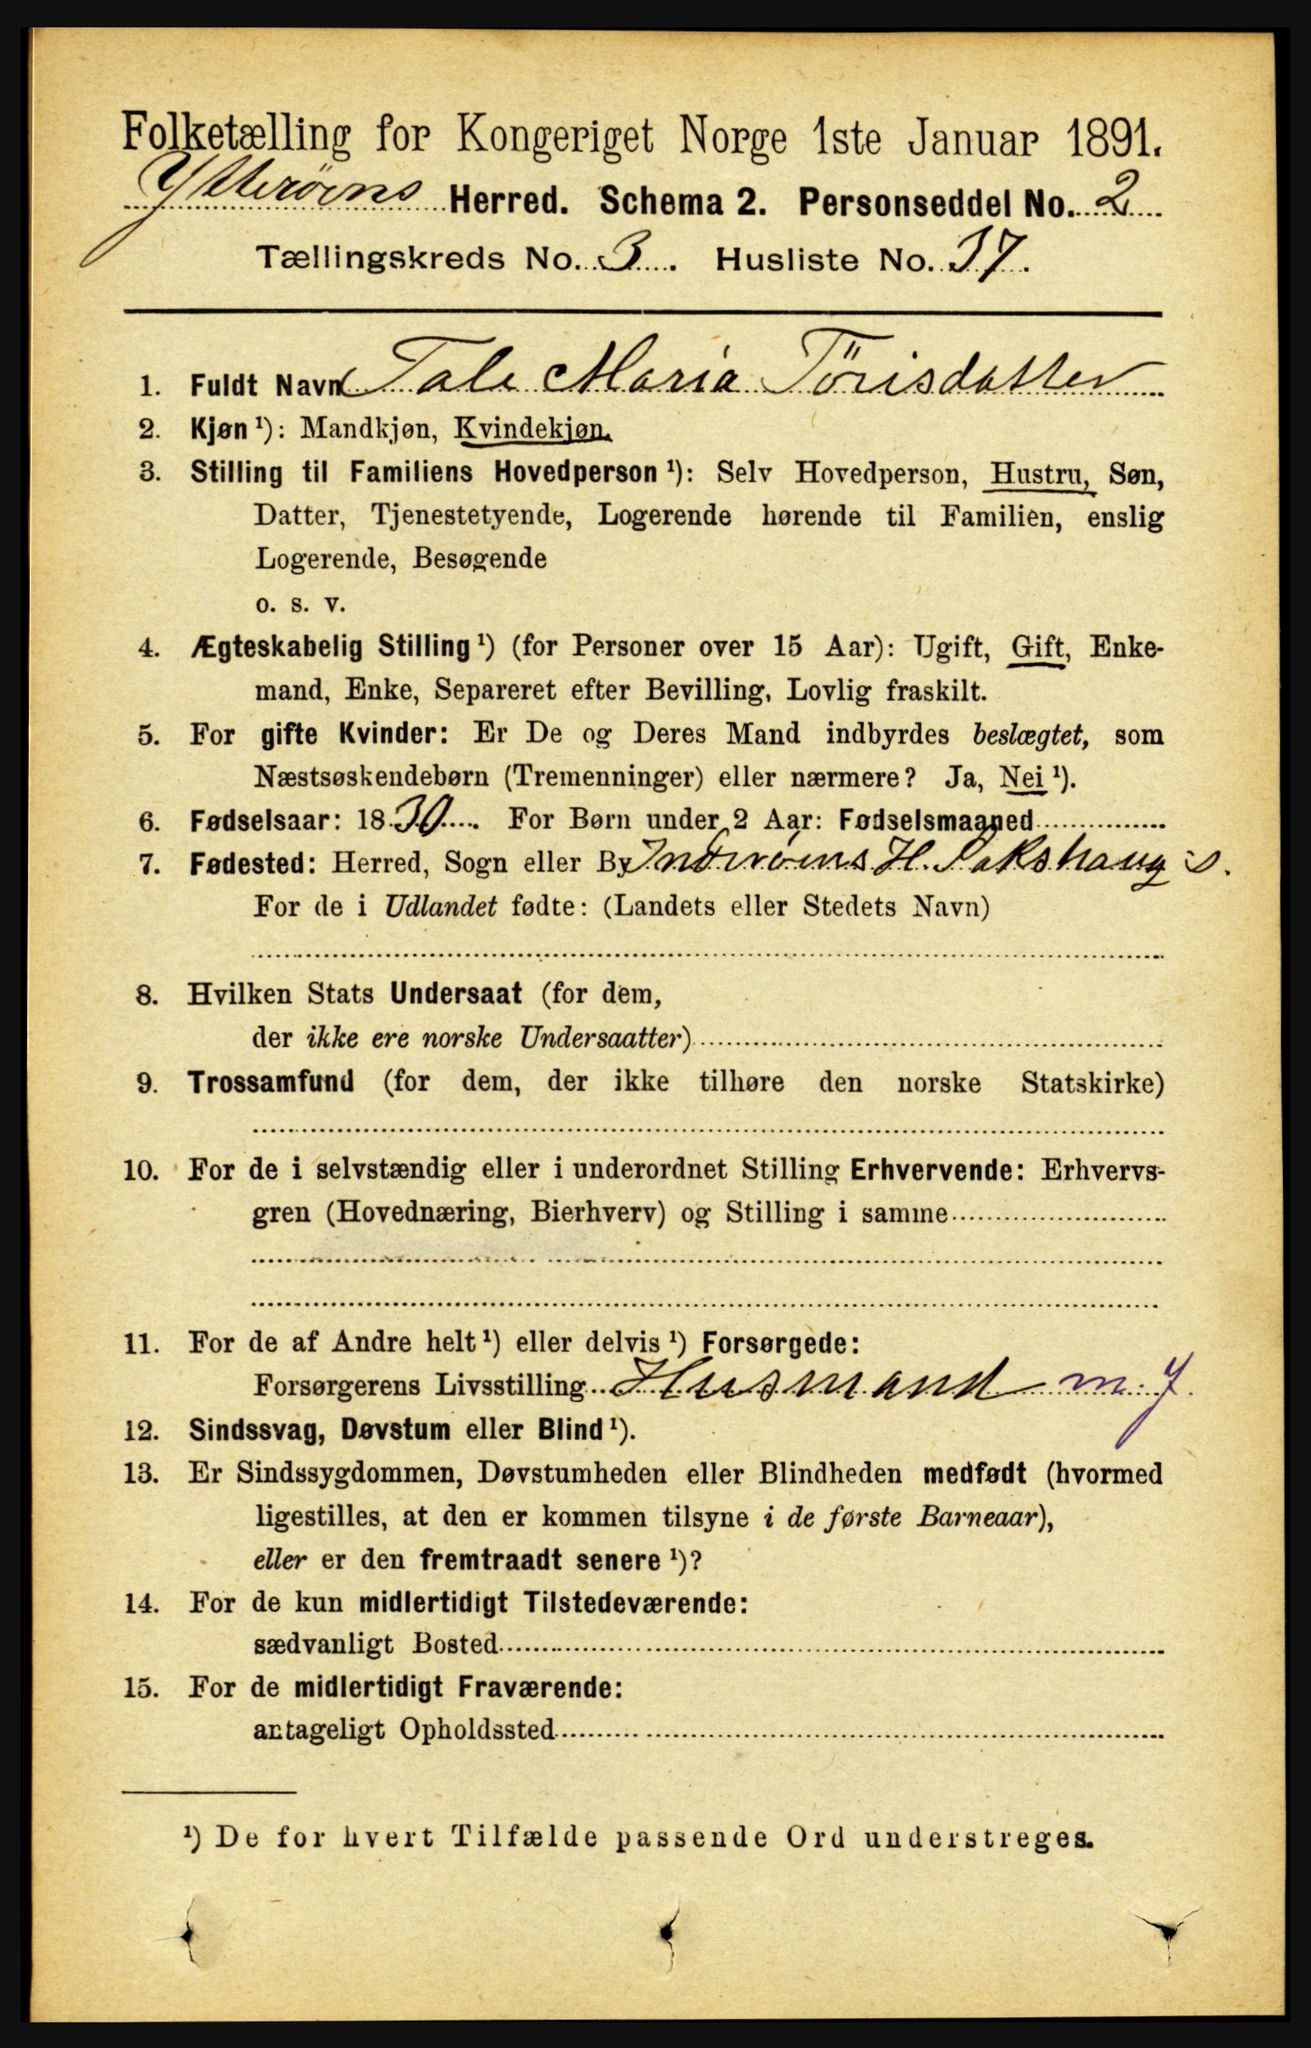 Folketælling for Kongeriget Norge 1ste Januar 1891.
Ytterøens Herred. Schema 2. Personseddel No. 2
Tællingskreds No. 3. Husliste No. 37.
1. Fuldt Navn Tale Maria Tørisdatter
2. Kjøn ¹): Mandkjøn, Kvindekjøn.
3. Stilling til Familiens Hovedperson ¹): Selv Hovedperson, Hustru, Søn,
Datter, Tjenestetyende, Logerende hørende til Familien, enslig
Logerende, Besøgende
o. s. v.
4. Ægteskabelig Stilling ¹) (for Personer over 15 Aar): Ugift, Gift, Enke-
mand, Enke, Separeret efter Bevilling, Lovlig fraskilt.
5. For gifte Kvinder: Er De og Deres Mand indbyrdes beslægtet, som
Næstsøskendebørn (Tremenninger) eller nærmere? Ja, Nei ¹).
6. Fødselsaar: 1830. For Børn under 2 Aar: Fødselsmaaned
7. Fødested: Herred, Sogn eller By Inderøens H. Sakshaug s.
For de i Udlandet fødte: (Landets eller Stedets Navn)
8. Hvilken Stats Undersaat (for dem,
der ikke ere norske Undersaatter)
9. Trossamfund (for dem, der ikke tilhøre den norske Statskirke)
10. For de i selvstændig eller i underordnet Stilling Erhvervende: Erhvervs-
gren (Hovednæring, Bierhverv) og Stilling i samme
11. For de af Andre helt ¹) eller delvis ¹) Forsørgede:
Forsørgerens Livsstilling Husmand m. J.
12. Sindssvag, Døvstum eller Blind ¹).
13. Er Sindssygdommen, Døvstumheden eller Blindheden medfødt (hvormed
ligestilles, at den er kommen tilsyne i de første Barneaar),
eller er den fremtraadt senere ¹)?
14. For de kun midlertidigt Tilstedeværende:
sædvanligt Bosted
15. For de midlertidigt Fraværende:
antageligt Opholdssted
¹) De for hvert Tilfælde passende Ord understreges.